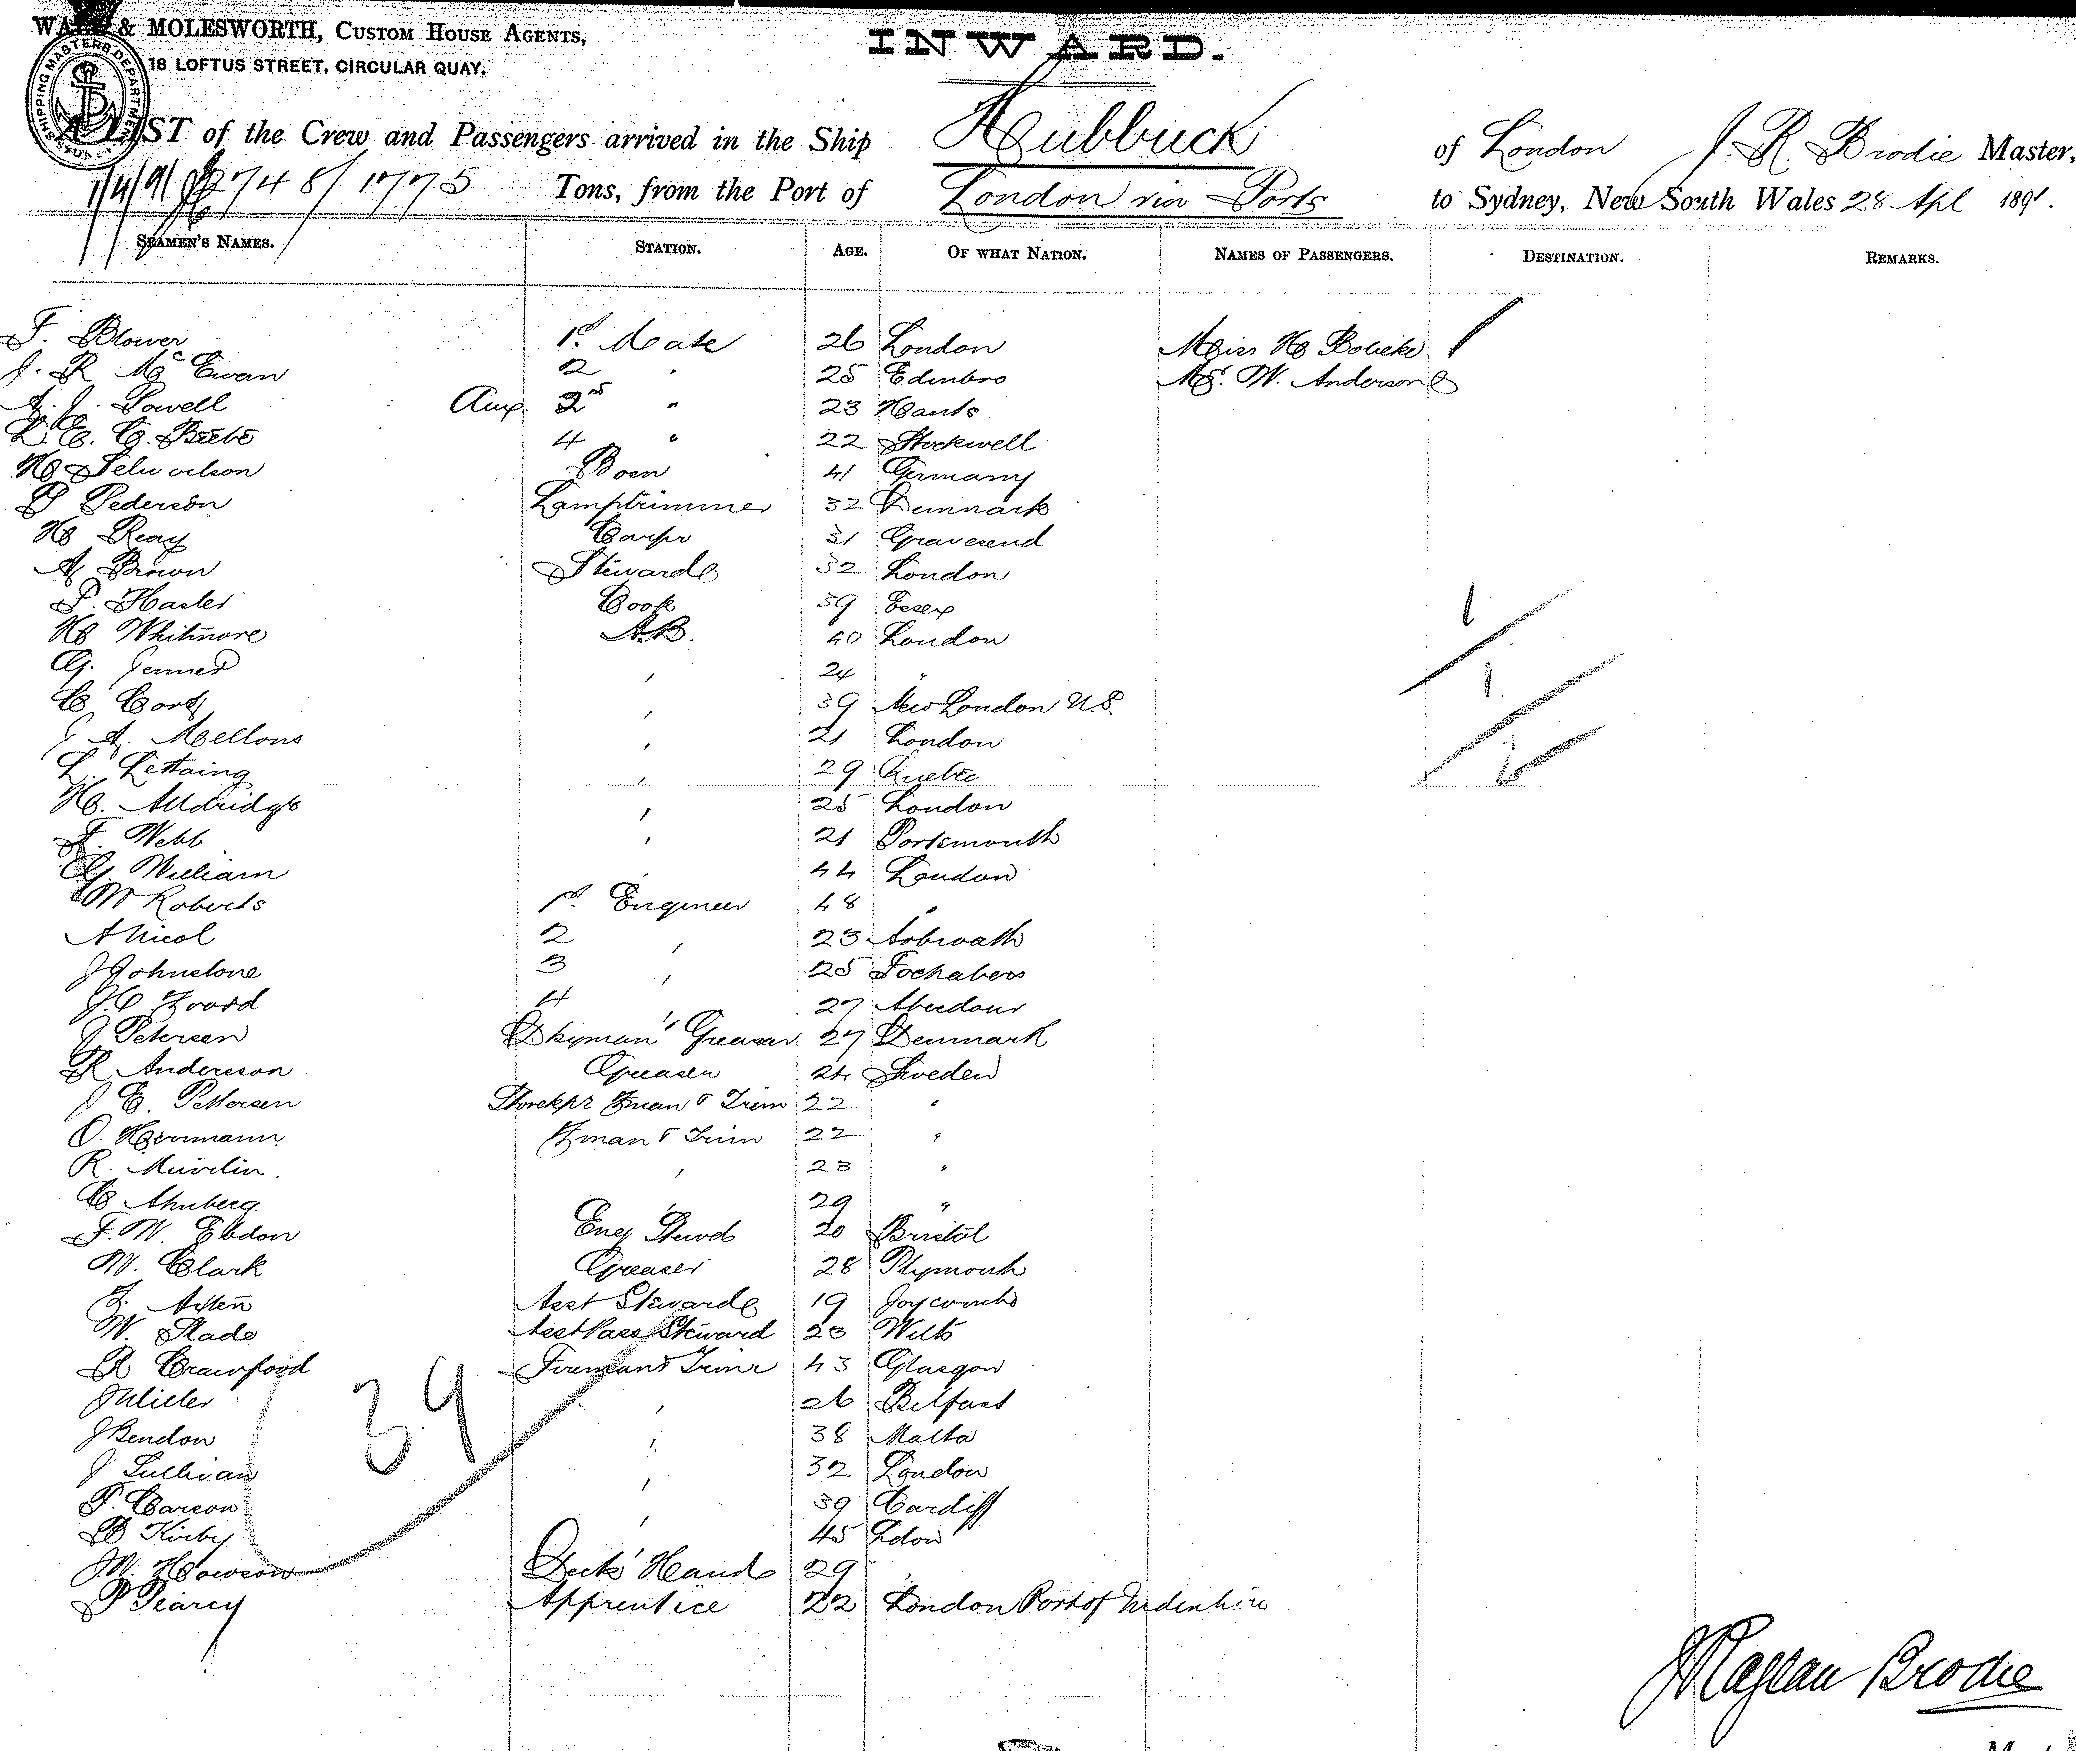 WATT & MOLESWORTH, CUSTOM HOUSE AGENTS,
18 LOFTUS STREET, CIRCULAR QUAY.
SHIPPING MASTERS DEPARTMENT
INWARD.
A LIST of the Crew and Passengers arrived in the Ship Hubbuck of London J. R. Brodie Master,
1/4/91 2748/1775 Tons, from the Port of London via Ports to Sydney, New South Wales 28 Apl 1891.
SEAMEN'S NAMES. STATION. AGE. OF WHAT NATION. NAMES OF PASSENGERS. DESTINATION. REMARKS.
F. Blower 1st Mate 26 London Miss H
J. R McEwan 2 " 25 Edinbro Mr. W. Anderson
Powell Aug. 2nd " 23 Hants
4 " 22 Stockwell
H Bosn 41 Germany
P Pederson Lamptrimmer 32 Denmark
H Reay Carpr 31 Gravesend
A Brown Steward 32 London
P. Hasler Cook 39 Essex
H Whitmore A.B. 40 London
G. Jenner 24 "
C. Cort , 39 New London U.S.
J A. Mellons , 21 London
L. , 29 Quebec
H. Alldridge , 25 London
F. Webb , 21 Portsmouth
G. William 44 London
W Roberts 1st Engineer 48 "
A Nicol 2 , 23 Arbroath
J Johnstone 3 , 25 Fochabers
4 , 27 Aberdour
J Petersen Dkyman & Greaser 27 Denmark
R Andersson Greaser 24 Sweden
J E. Pettersen Storekpr Fman & Trim 22 "
O. Herrmann Fman & Trim 22 "
R. , 23 "
C Ahnberg , 29 "
F. W. Ebdon Eng Stewd 20 Bristol
W. Clark Greaser 28 Plymouth
F. Asst Steward 19
W. Slade Asst Pass Steward 23 Wilts
R Crawford Fireman & Trimr 43 Glasgow
J Miller , 26 Belfast
J Bendon , 38 Malta
J Sullivan , 32 London
P. Carson , 39 Cardiff
B Kirby , 45 Ldon
W. Howson Deck Hand 29
P Pearcy Apprentice 22 London Port of Indenture
39
J Raglan Brodie